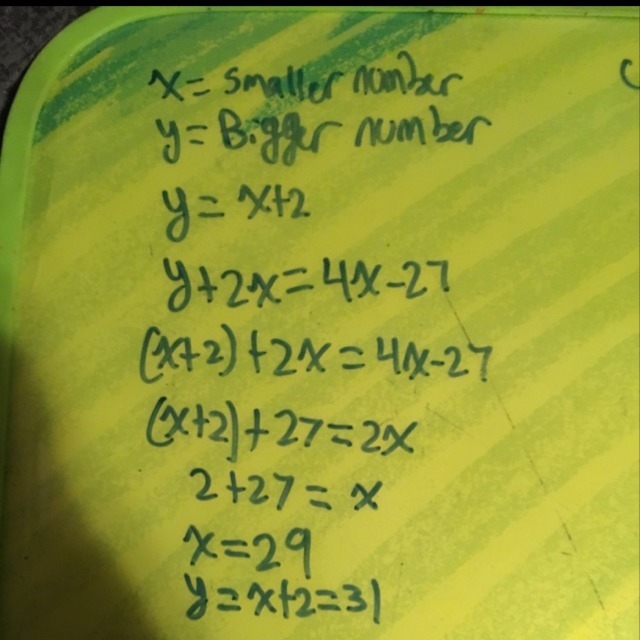 x = smaller number
y = Bigger number
y = x+2
y+2x=4x-27
(x+2)+2x=4x-27
(x+2)+27=2x
2+27=x
x=29
y=x+2=31